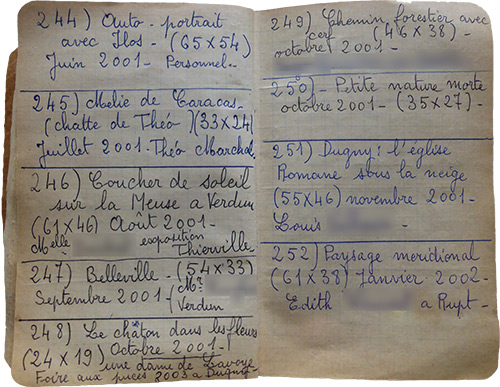 244) Auto-portrait
avec Ilos - (65 X 54)
Juin 2001 - Personnel -
245) Melie de Caracas -
(chatte de Théo) (33 X 24)
Juillet 2001 - Théo Marchal
246) Coucher de soleil
sur la Meuse a Verdun
(61 X 46) Août 2001 -
Melle exposition
Thierville
247) Belleville - (54 X 33)
Septembre 2001 - Mr
Verdun
248) Le châton dans les fleurs
(24 X 19) Octobre 2001 -
une dame de Lavoye
Foire aux puces 2003 a Dugny -
249) Chemin forestier avec
cerf (46 X 38) -
octobre 2001 -
250) - Petite nature morte
octobre 2001 - (35 X 27) -
251) Dugny : l'église
Romane sous la neige
(55 X 46) novembre 2001 -
Louis -
252) Paysage meridional
(61 X 38) Janvier 2002 -
Edith a Rupt -